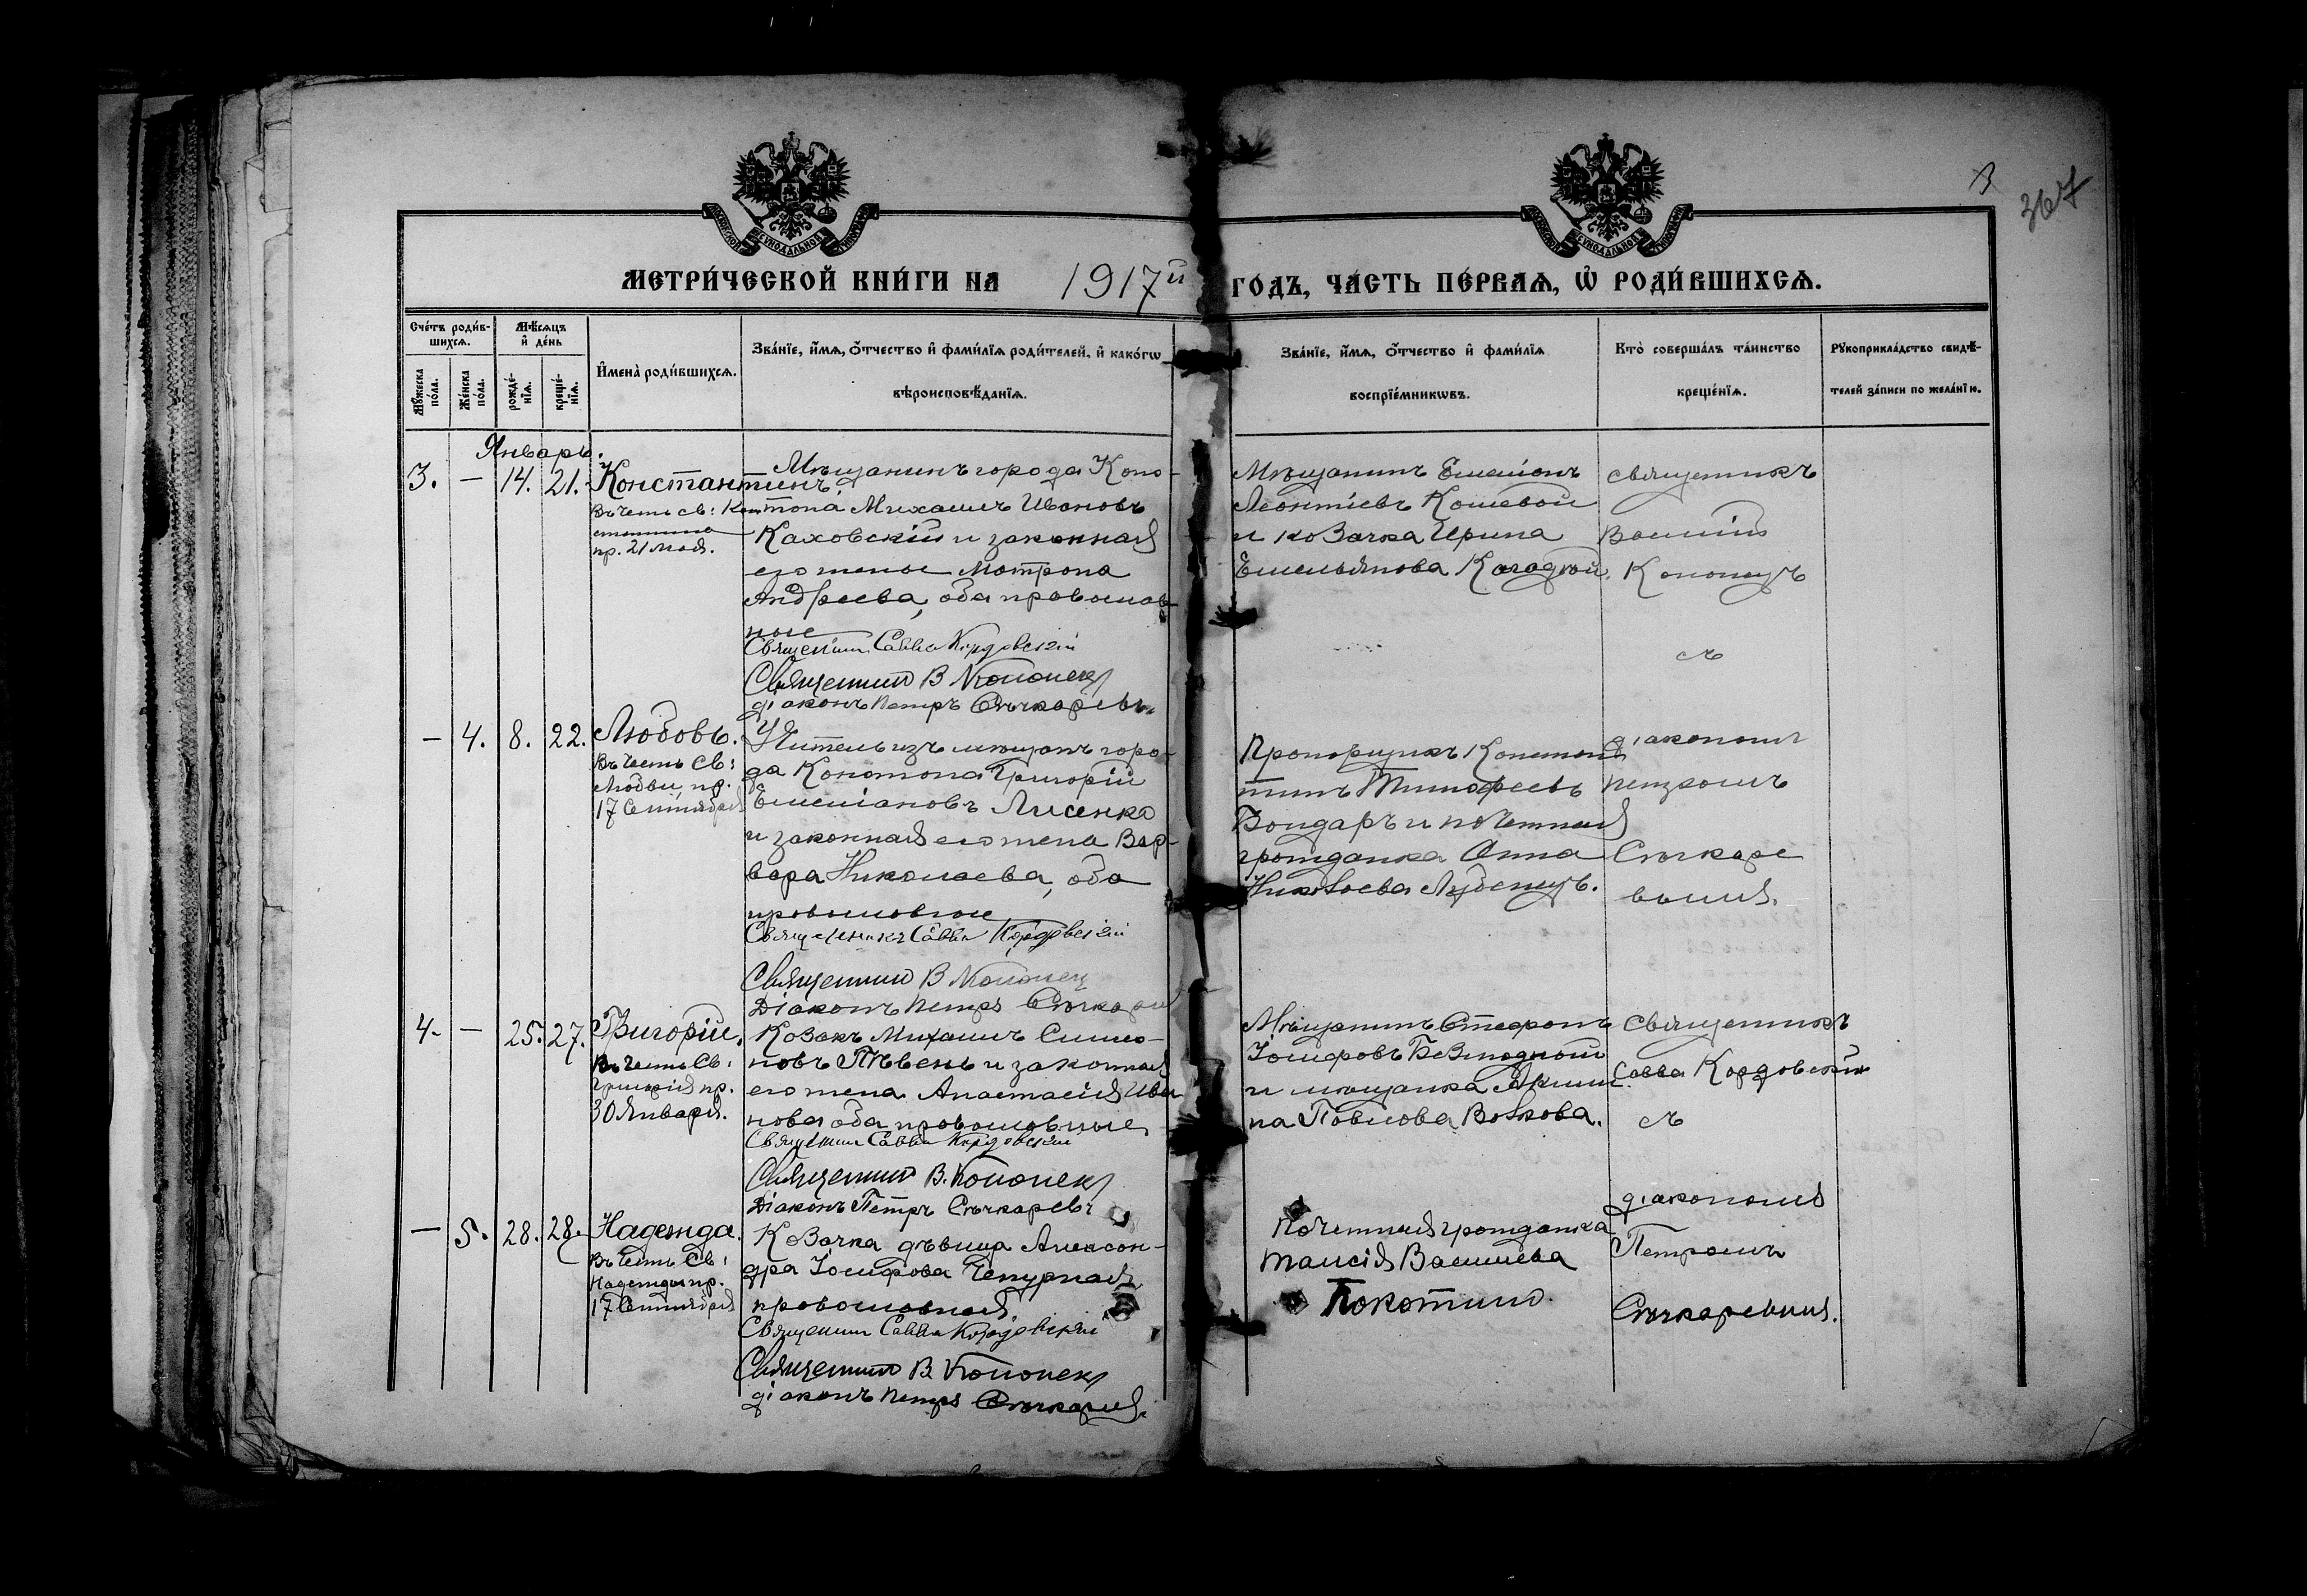 3
367
МЕТРИ́ЧЕСКОЙ КНИ́ГИ НА 1917й ГОДЪ, ЧА́СТЬ ПЕ́РВАѦ, Ѡ҆ РОДИ́ВШИХСѦ.
Сче́тъ роди́в-
шихсѧ.
Мꙋ́жеска по́ла.
Же́нска по́ла.
Мѣ́сѧцъ
и҆ де́нь
рожде́-
нїѧ.
креще́-
нїѧ.
И҆мена̀ роди́вшихсѧ.
Зва́нїе, и҆́мѧ, ѻ҆́тчество и҆ фами́лїѧ роди́телей, и҆ како́гѡ
вѣроисповѣ́данїѧ.
Зва́нїе, и҆́мѧ, ѻ҆́тчество и҆ фами́лїѧ
воспрїе́мникѡвъ.
Кто̀ соверша́лъ та́инство
креще́нїѧ.
Рꙋкоприкла́дство свидѣ́-
телей за́писи по жела́нїю.
Январь.
3. — 14. 21. Константинъ.
Въ честь св: Кон
стантина
пр. 21 мая.
Мѣщанинъ города Коно-
топа Михаилъ Ивановъ
Каховскій и законная
его жена Матрона
Андреева, оба православ-
ные
Священник Савва Кордовскій
Священник В Кононец
діаконъ Петръ Сѣчкаревъ.
Мѣщанинъ Емеліанъ
Леонтіевъ Кошевой
и козачка Ирина
Емельянова
священникъ
Василій
Кононецъ
съ
— 4. 8. 22. Любовь.
Въ честь Св:
Любви, пр.
17 Сентября
Учитель изъ мѣщанъ горо-
да Конотопа Григорій
Емеліановъ Лисенко
и законная его жена Вар-
вара Николаева, оба
православные
Священникъ Савва Кордовскій
Священник В Кононец
Діаконъ Петръ
Прапорщикъ Констан
тинъ Тимофеевъ
Бондарь и почетная
гражданка Анна
Николаева Лубенецъ.
діакономъ
Петромъ
Сѣчкаре
вымъ.
4. — 25. 27. Григорій.
Въ честь Св:
Григорія пр.
30 Января.
Козакъ Михаилъ Симео-
новъ Пѣвень и законная
его жена Анастасія Ива
нова оба православные
Священник Савва Кордовскій
Священник В. Кононец
Діаконъ Петръ Сѣчкаревъ
Мѣщанинъ Стефанъ
Іосифовъ Безродный
и мѣщанка Акили-
на Павлова Волкова.
священникъ
Савва Кордовскій
съ
— 5. 28. 28. Надежда.
Въ честь Св:
Надежды пр.
17 Сентября
Козачка дѣвица Алексан-
дра Іосифова Чепурная,
православная.
Священник Савва Кордовскій
Священник В Кононец
діаконъ Петръ
Почетная гражданка
Таисія Васильева
Покотило.
діакономъ
Петромъ
Сѣчкаревымъ.